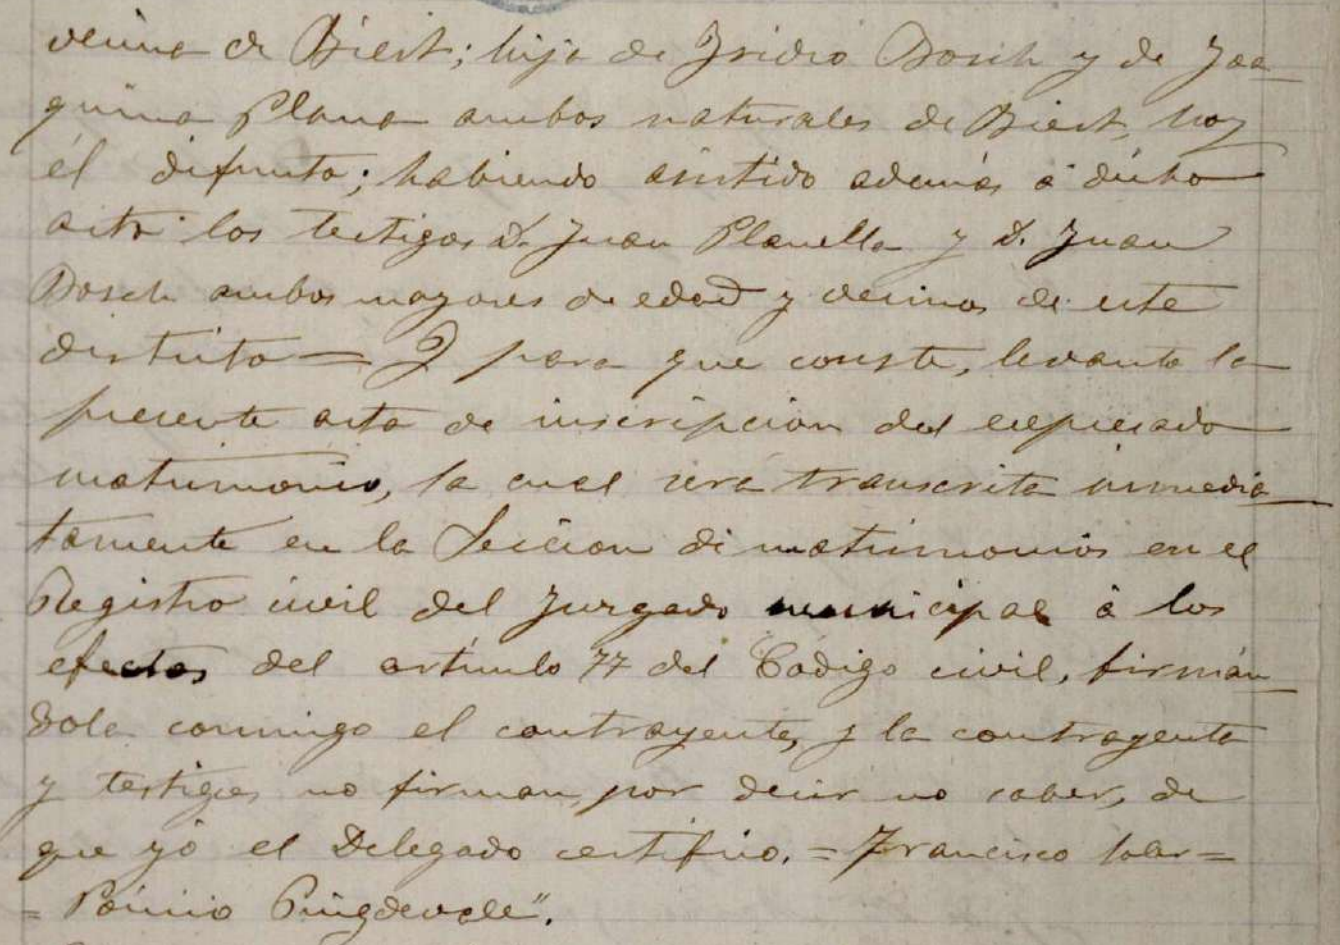 vecina de Biert; hija de Isidro Bosch y de Joa-
quina Plana ambos naturales de Biert, hoy
él difunto; habiendo asistido además á dicho
acto los testigos D. Juan Planella y D. Juan
Bosch ambos mayores de edad y vecinos de este
distrito = Y para que conste, levanto la
presente acta de inscripcion del expresado
matrimonio, la cual será transcrita inmedia-
tamente en la Seccion de matrimonios en el
Registro civil del Juzgado municipal á los
efectos del artículo 77 del Codigo civil, firmán-
dola conmigo el contrayente, y la contrayente
y testigos no firman por decir no saber, de
que yó el Delegado certifico. = Francisco =
= Puigdevall".